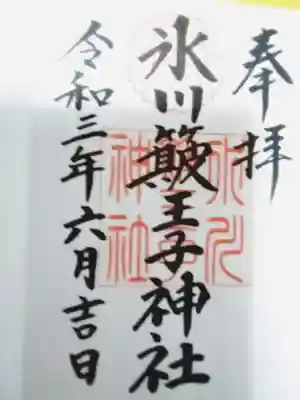 奉拝
氷川簸王子神社
令和三年六月吉日
氷川
神社